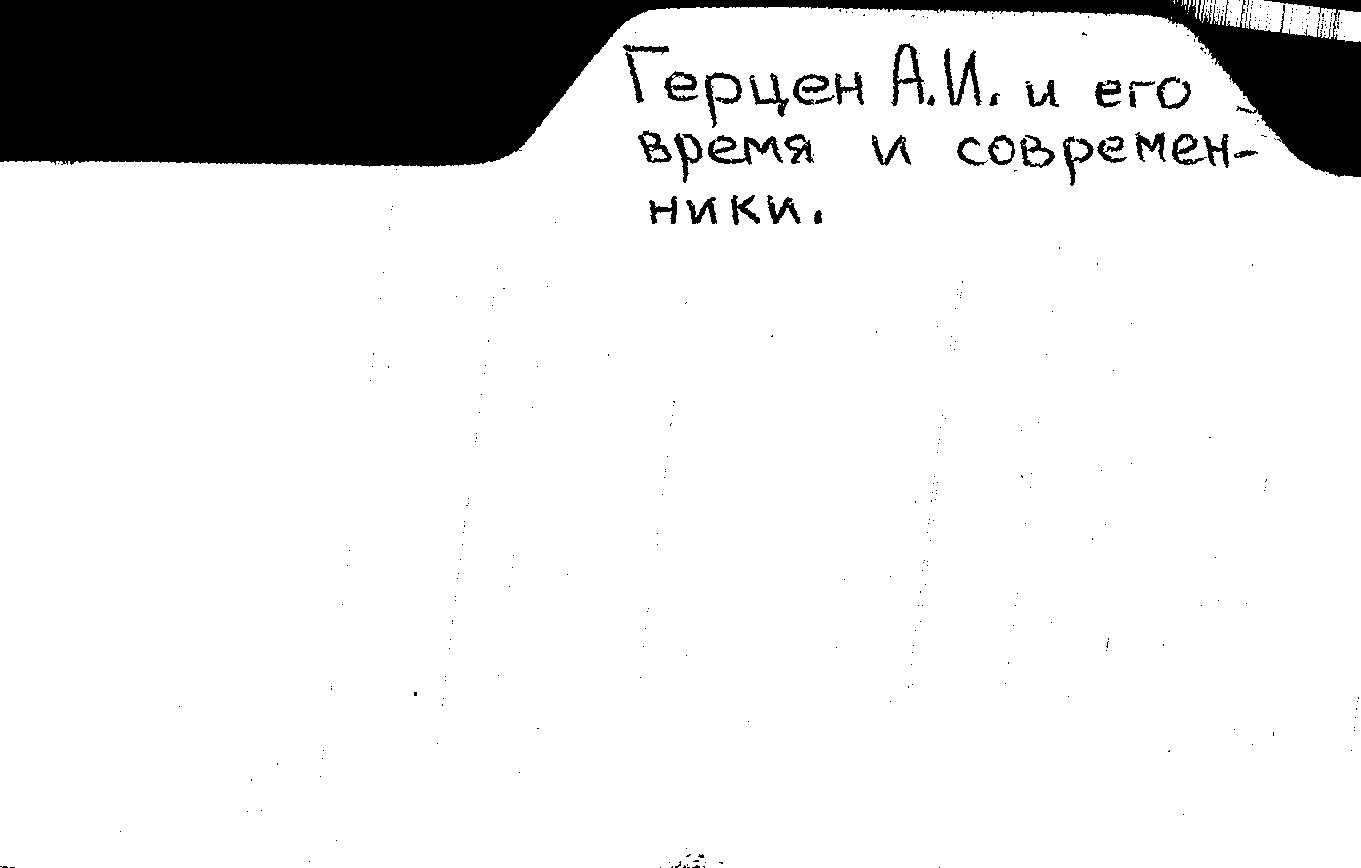 Герцен А.И. и его
время и современ-
ники.